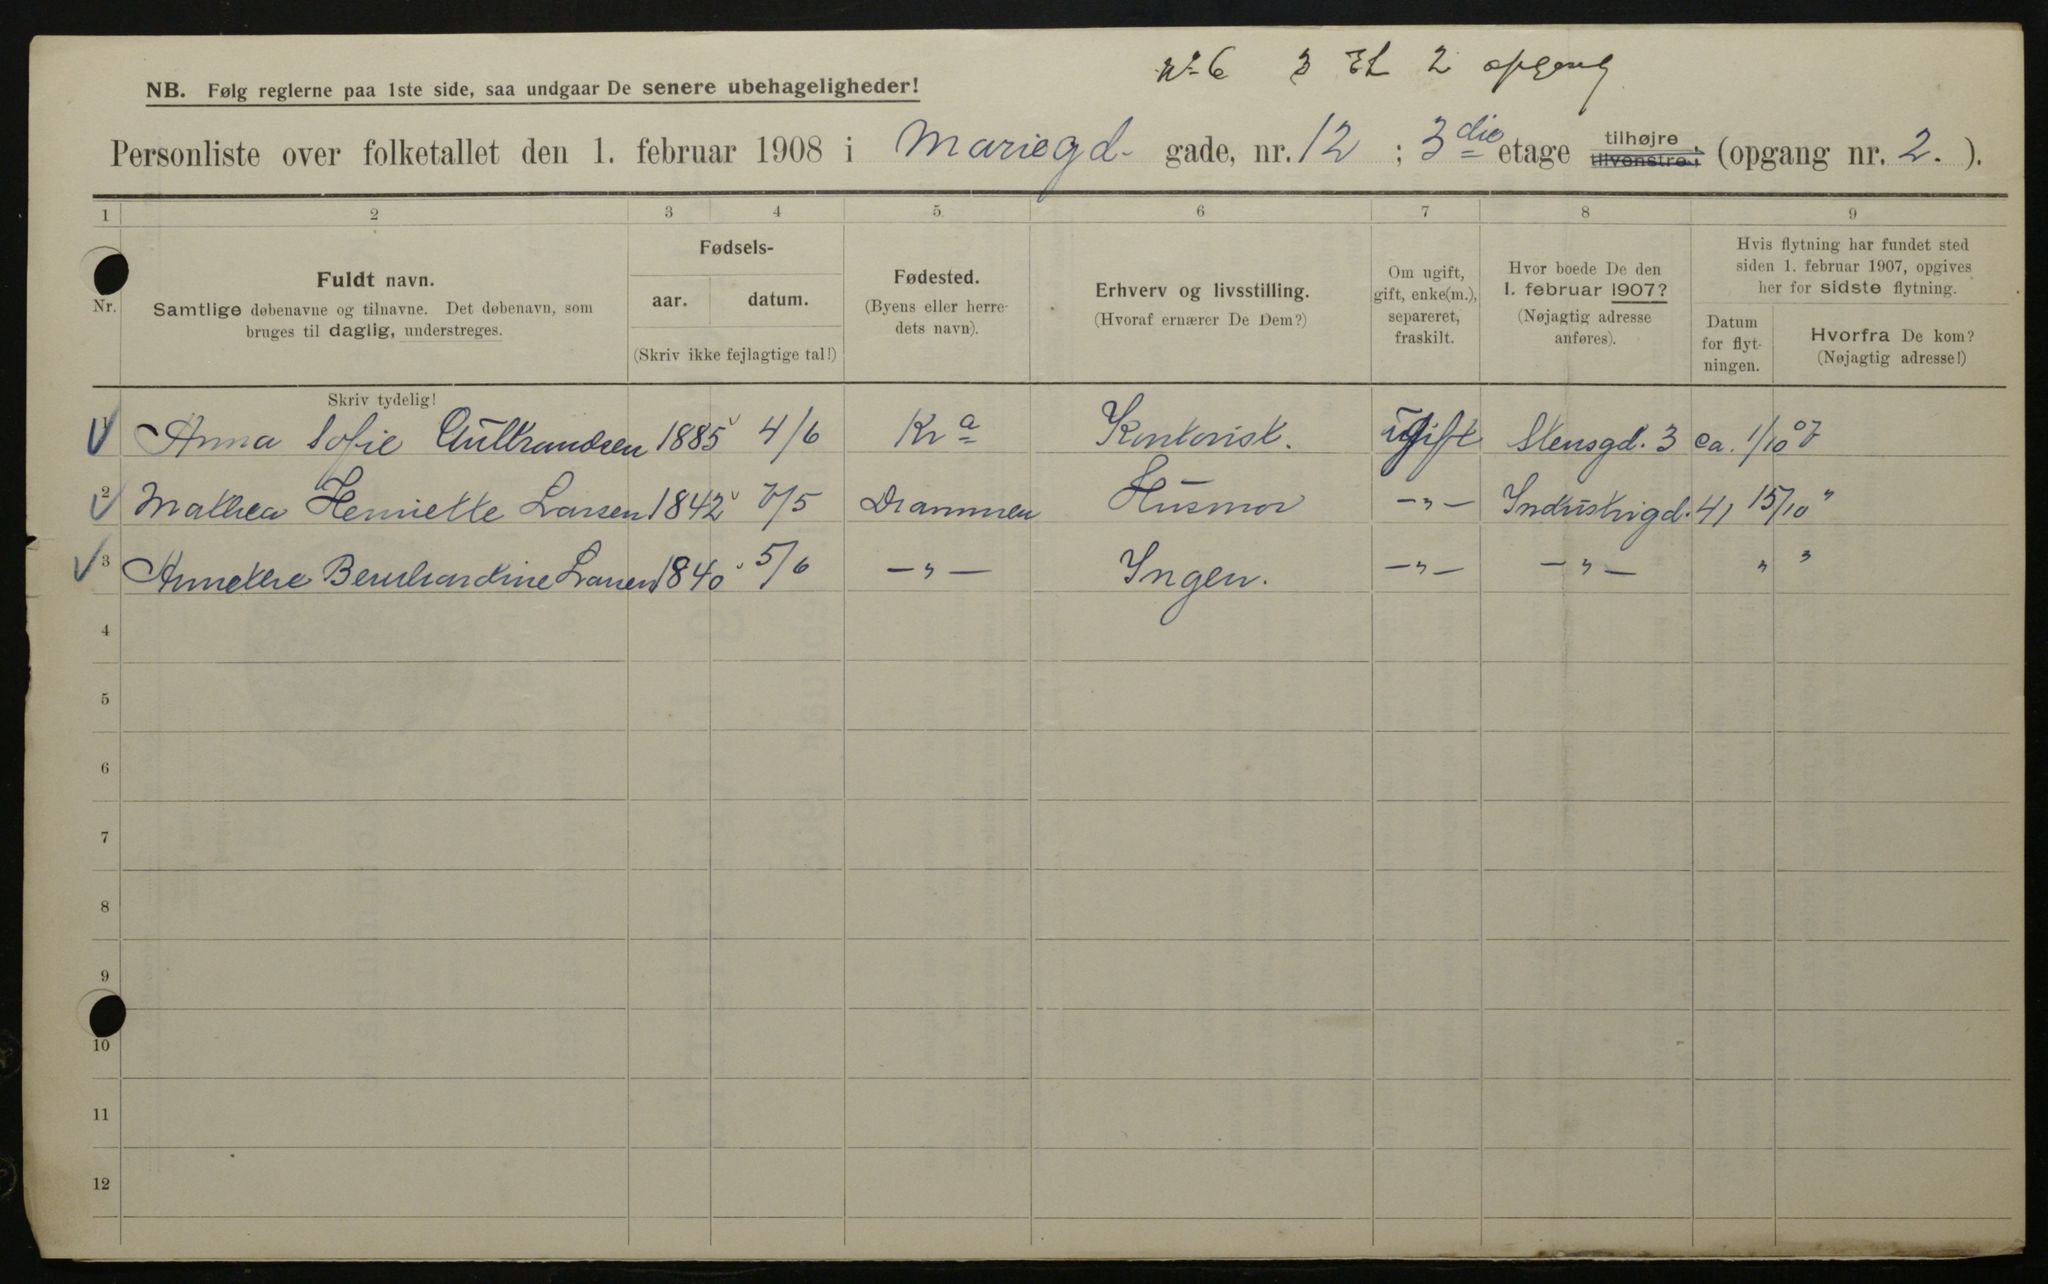 № 6 3 Et 2 opgang
NB. Følg reglerne paa 1ste side, saa undgaar De senere ubehageligheder!
Personliste over folketallet den 1. februar 1908 i Mariegd. gade, nr. 12 ; 3die etage tilhøjre, tilvenstre, (opgang nr. 2. ).
1 2 3 4 5 6 7 8 9
Nr.
Fuldt navn.
Samtlige døbenavne og tilnavne. Det døbenavn, som
bruges til daglig, understreges.
Fødsels-
aar. datum.
(Skriv ikke fejlagtige tal!)
Fødested.
(Byens eller herre-
dets navn).
Erhverv og livsstilling.
(Hvoraf ernærer De Dem?)
Om ugift,
gift, enke(m.),
separeret,
fraskilt.
Hvor boede De den
1. februar 1907?
(Nøjagtig adresse
anføres).
Hvis flytning har fundet sted
siden 1. februar 1907, opgives
her for sidste flytning.
Datum
for flyt-
ningen.
Hvorfra De kom?
(Nøjagtig adresse!)
Skriv tydelig!
1 Anna Sofie Gulbrandsen 1885 4/6 Kra Kontorist. Ugift Stensgd. 3 ca. 1/10 07
2 Mathea Henriette Larsen 1842 7/5 Drammen Husmor —"— Industrigd. 41 15/10 "
3 Annethe Bernhardine Larsen 1840 5/6 —"— Ingen. —"— —"— " "
4
5
6
7
8
9
10
11
12